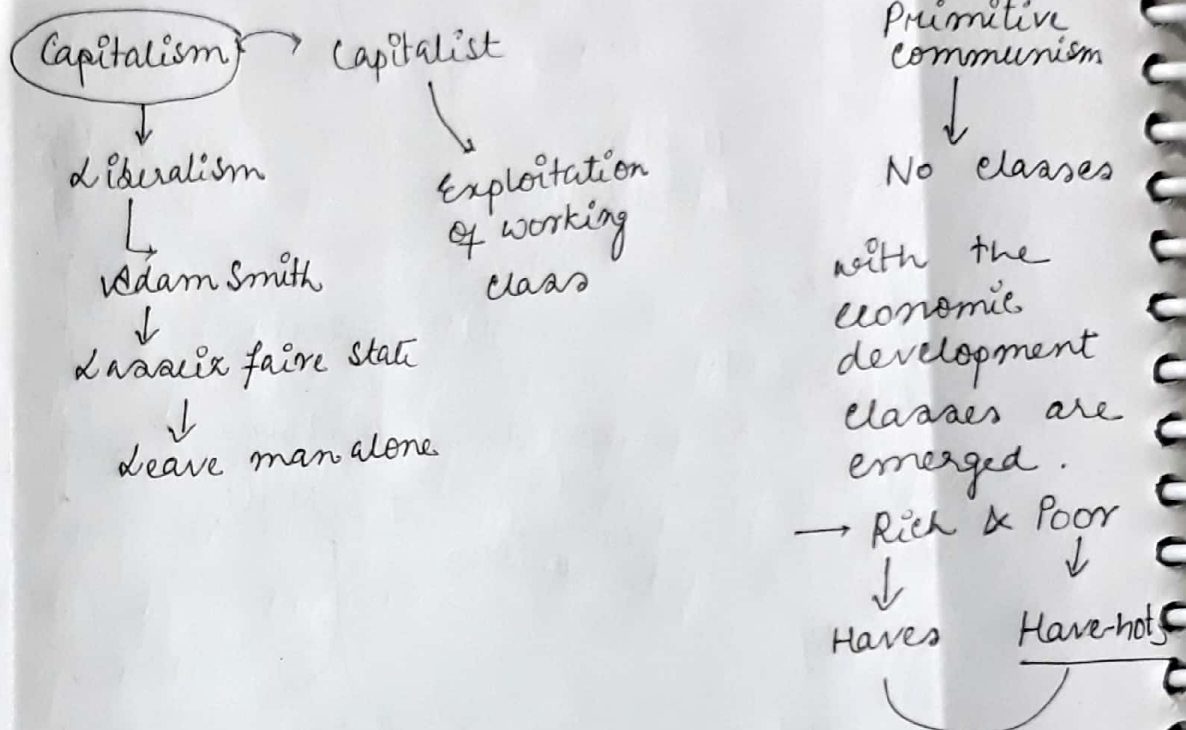 Capitalism → Capitalist
↓
Liberalism
Adam Smith
↓
Lasseix faire state
↓
Leave man alone
Exploitation
of working
class
Primitive
communism
↓
No classes
with the
economic
development
classes are
emerged.
→ Rich & Poor
↓ ↓
Haves Have-nots